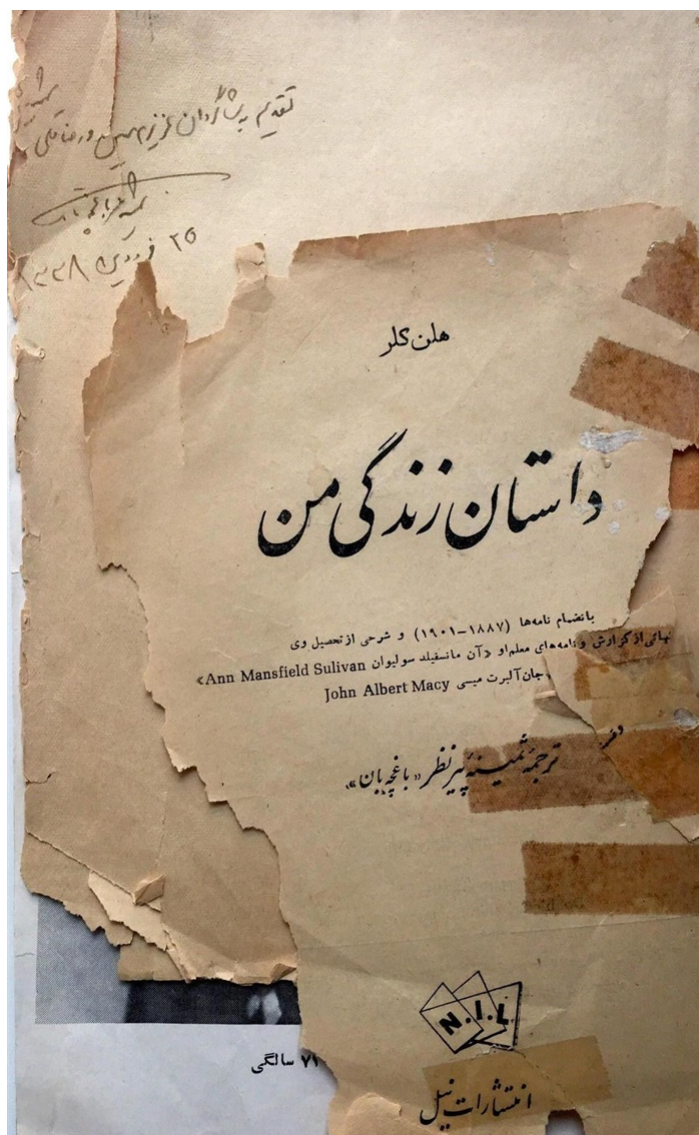 تقدیم به شاگردان عزیزم
۲۵ فروردین ۱۳۳۸
هلن کلر
داستان زندگی من
بانضمام نامه‌ها (۱۸۸۷–۱۹۰۱) و شرحی از تحصیل وی
از گزارش و نامه‌های معلم او «آن مانسفیلد سولیوان Ann Mansfield Sulivan»
جان آلبرت میسی John Albert Macy
ترجمهٔ ثمینهٔ پیرنظر «باغچه‌بان»
N.I.L.
انتشارات نیل
۷۱ سالگی